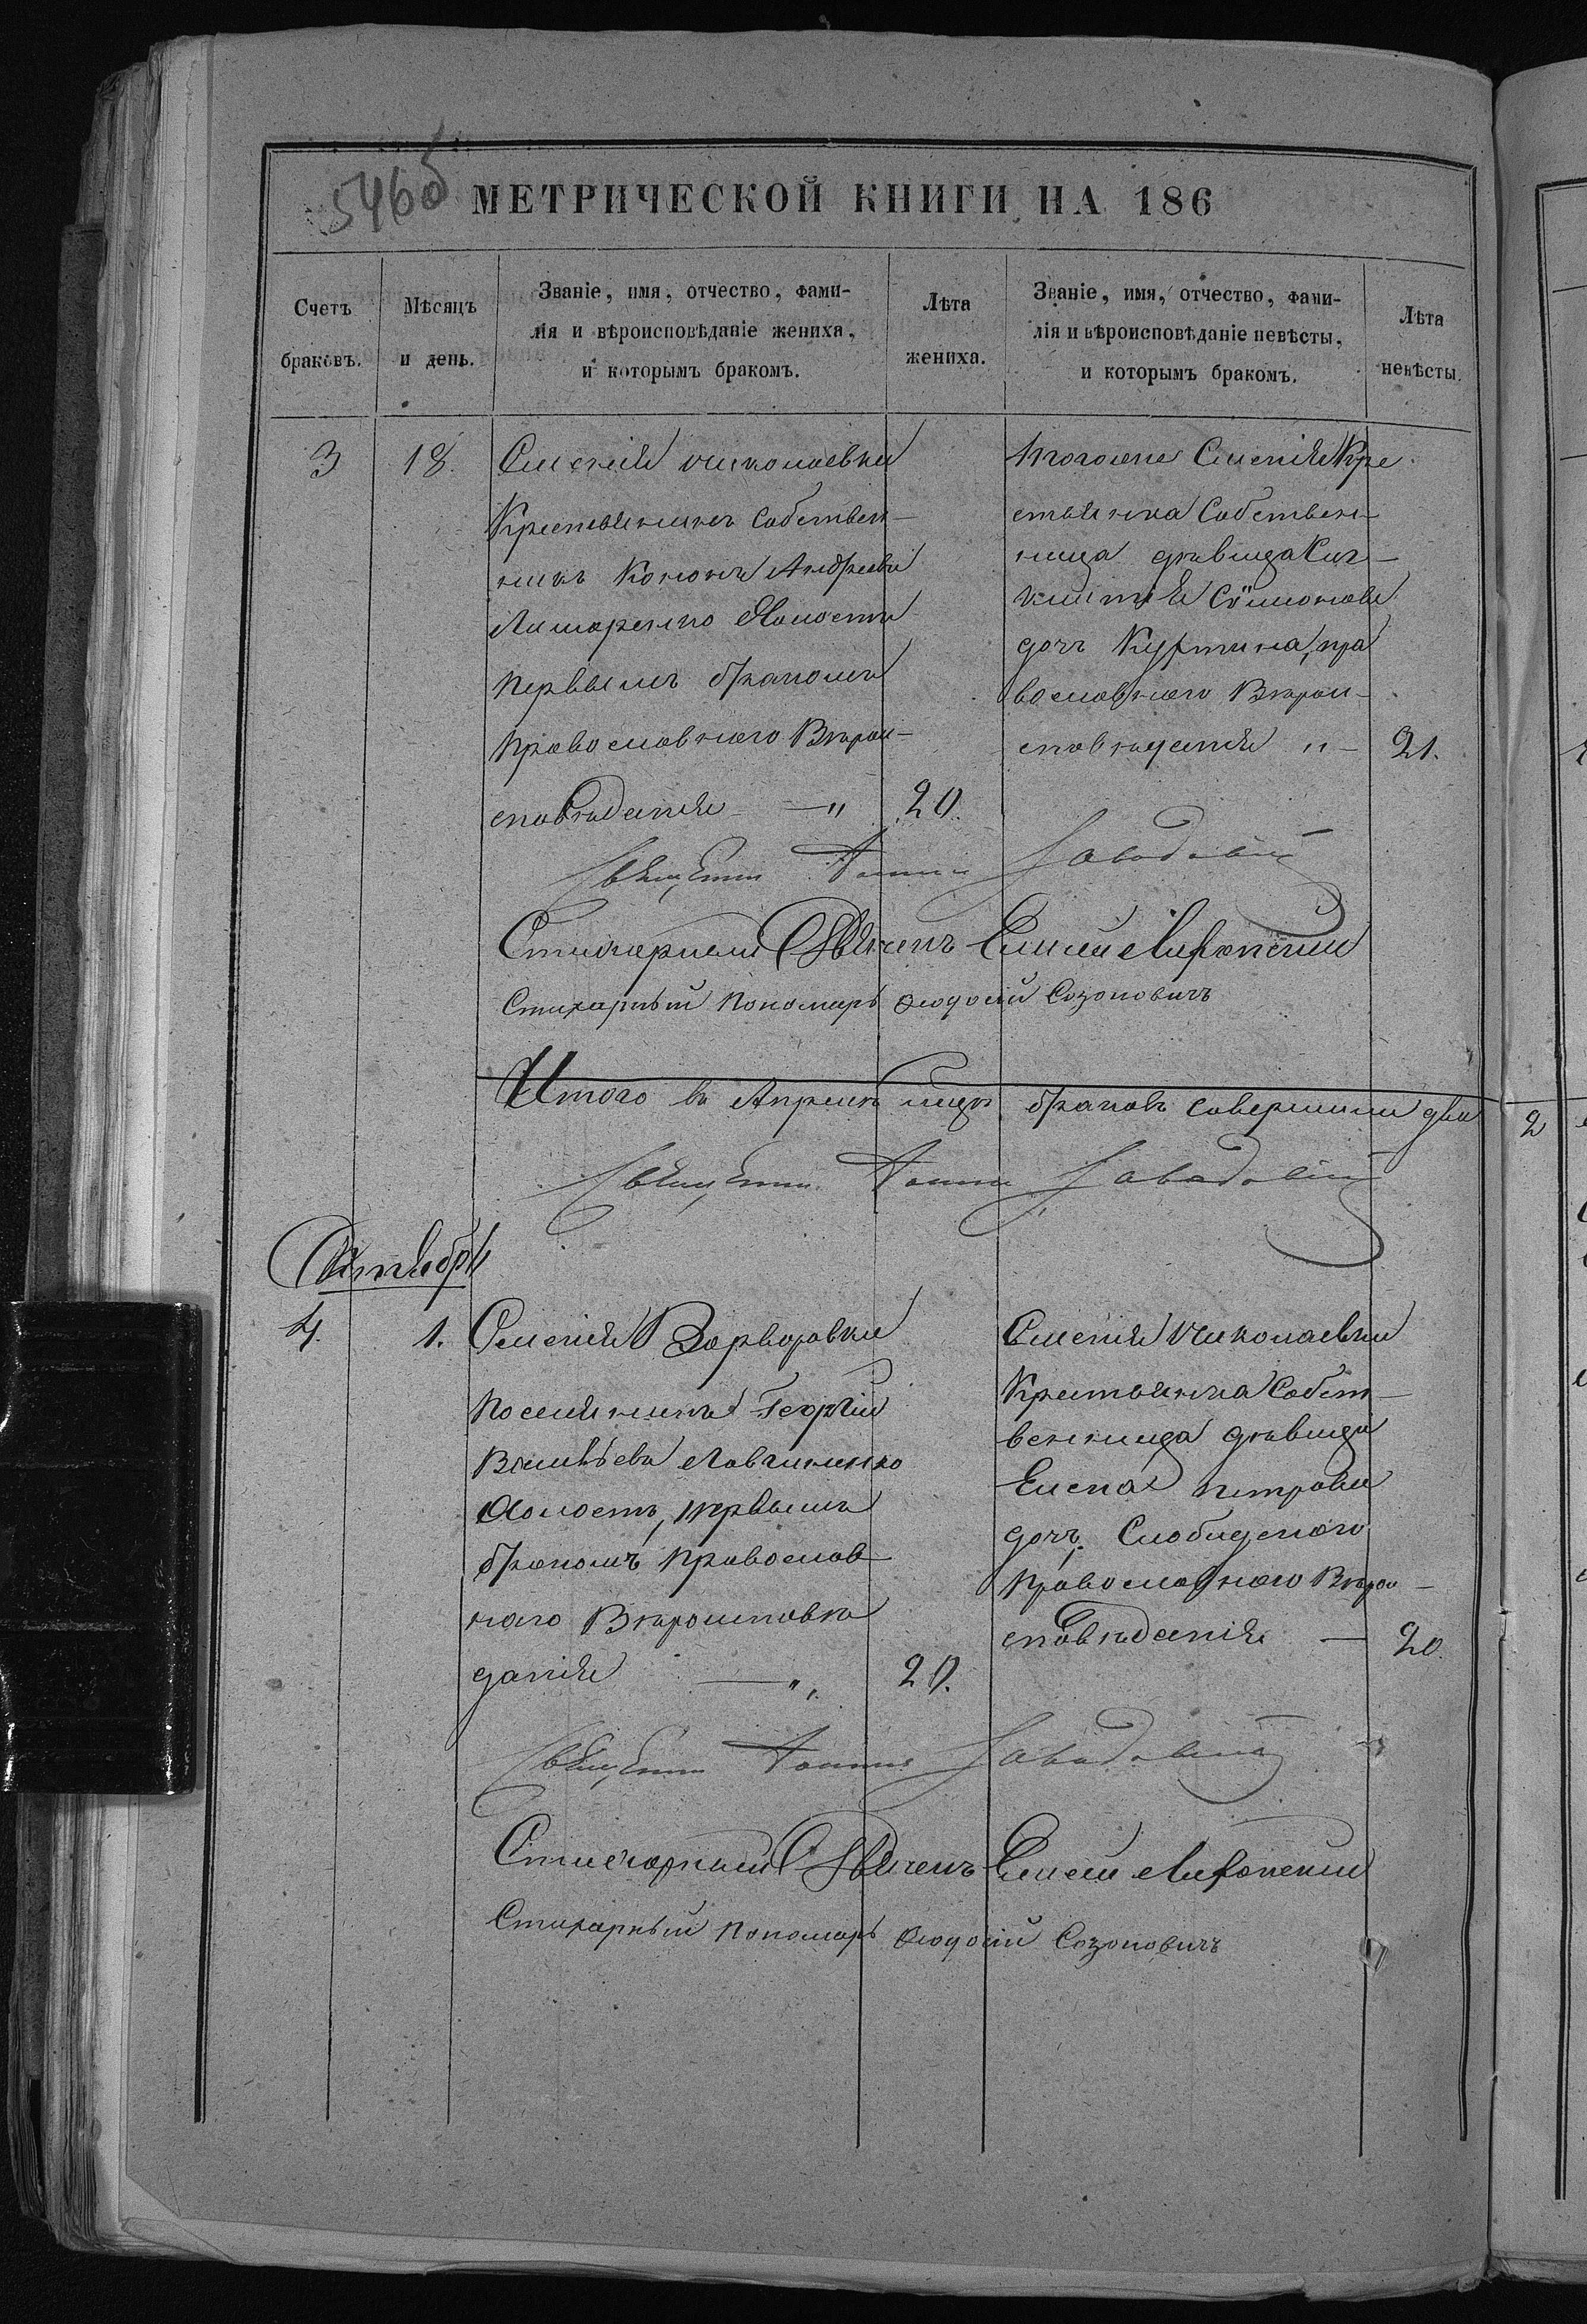 546об
МЕТРИЧЕСКОЙ КНИГИ НА 186
Счетъ
браковъ.
Мѣсяцъ
и день.
Званіе, имя, отчество, фами-
лія и вѣроисповѣданіе жениха,
и которымъ бракомъ.
Лѣта
жениха.
Званіе, имя, отчество, фами-
лія и вѣроисповѣданіе невѣсты,
и которымъ бракомъ.
Лѣта
невѣсты.
3
18.
Николаевки
Крестьянинъ Собствен-
никъ Кононъ Андреевъ
Лимаренко Холостъ
первымъ бракомъ
православнаго Вѣрои-
сповѣданія — „ 20.
Тогоже Кре
стьянка Собствен-
ница дѣвица
Симонова
дочь пра
вославнаго Вѣрои-
сповѣданія „ — 21.
Священник Иоанн
Стихарный Елисей
Стихарный Пономарь Ѳеодосій Созоновичъ
Итого въ Апрелѣ мцѣ браковъ совершили два
2
Священник Иоанн
4.
1.
Варваровки
Поселянинъ Георгій
Холостъ, первымъ
бракомъ православ-
наго Вѣроисповѣ
данія — „ 20.
Николаевки
Крестьянка Собст-
венница дѣвица
Елена Петрова
дочь
Православнаго Вѣрои-
сповѣданія — 20.
Священник Иоанн
Стихарный Елисей
Стихарный Пономарь Ѳеодосій Созоновичъ